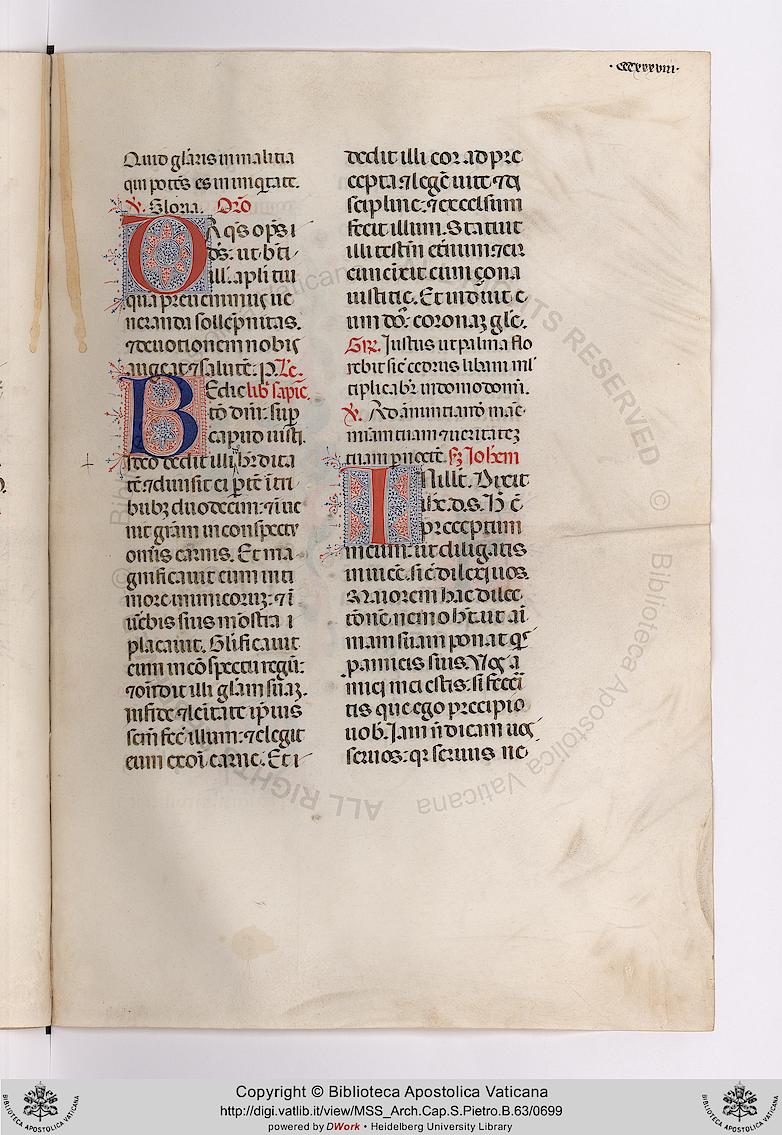 ·CCCxxxviii·
Quid gl̃aris in malitia
qui potẽs es in iniq̃tate.
℣. Gloria. Orõ
DA q̃s op̃s i
ds̃: ut b̃ti
ill. apl̃i tui
qua preuenimus ue
neranda sollẽpnitas.
⁊ deuotionem nobis
augeat ⁊ salutẽ. P. Lc̃.
BEñdic lib̃ sapiẽ.
tõ dñi: sup̃
caput iusti.
Ideo dedit illi h̃rdita
tẽ ⁊ diuisit ei p̃tẽ ĩ tri
bubꝫ duodecim: ⁊ ĩue
nit gr̃am in conspectu
om̃is carnis. Et ma
gnificauit eum in ti
more inimicoruꝫ: ⁊ ĩ
uẽbis suis mõstra i
placauit. Gl̃ificauit
eum in cõspectu regũ:
⁊ ondit illi gl̃am suaꝫ.
In fide ⁊ leitate ip̃ius
sc̃m fec̃ illum: ⁊ elegit
eum ex oĩ carne. Et i
dedit illi cor ad pre
cepta ⁊ legẽ uite ⁊ di
scipline: ⁊ excelsum
fecit illum. Statuit
illi testm̃ et̃num: ⁊ cir
cuncĩxit eum çona
iustitie. Et induit e
um dõ: coronaꝫ gl̃e.
GR̃. Iustus ut palma flo
rebit sic̃ cedrus libani ml̃
tiplicabr̃ in domo domĩ.
℣. Ad ãnuntiandõ mañe
mĩam tuam ⁊ ueritateꝫ
tuam p̃ noctẽ. Sc̃ Joh̃em
IN illo t̃. Dixit
ih̃c. d. s. H̃ ẽ
preceptum
meum: ut diligatis
inuicẽ. sic̃ dilexi uos.
Maiorem hac dilec
tõnẽ nemo h̃t. ut ai
mam suam ponat q̃s
p̃ amicis suis. Vos a
mici mei estis: si feceri
tis que ego precipio
uob̃. Iam ñ dicam uos
seruos: qr seruus ne
ALL RIGHTS RESERVED © Biblioteca Apostolica Vaticana
Copyright © Biblioteca Apostolica Vaticana
http://digi.vatlib.it/view/MSS_Arch.Cap.S.Pietro.B.63/0699
powered by DWork • Heidelberg University Library
BIBLIOTECA APOSTOLICA VATICANA
BIBLIOTECA APOSTOLICA VATICANA